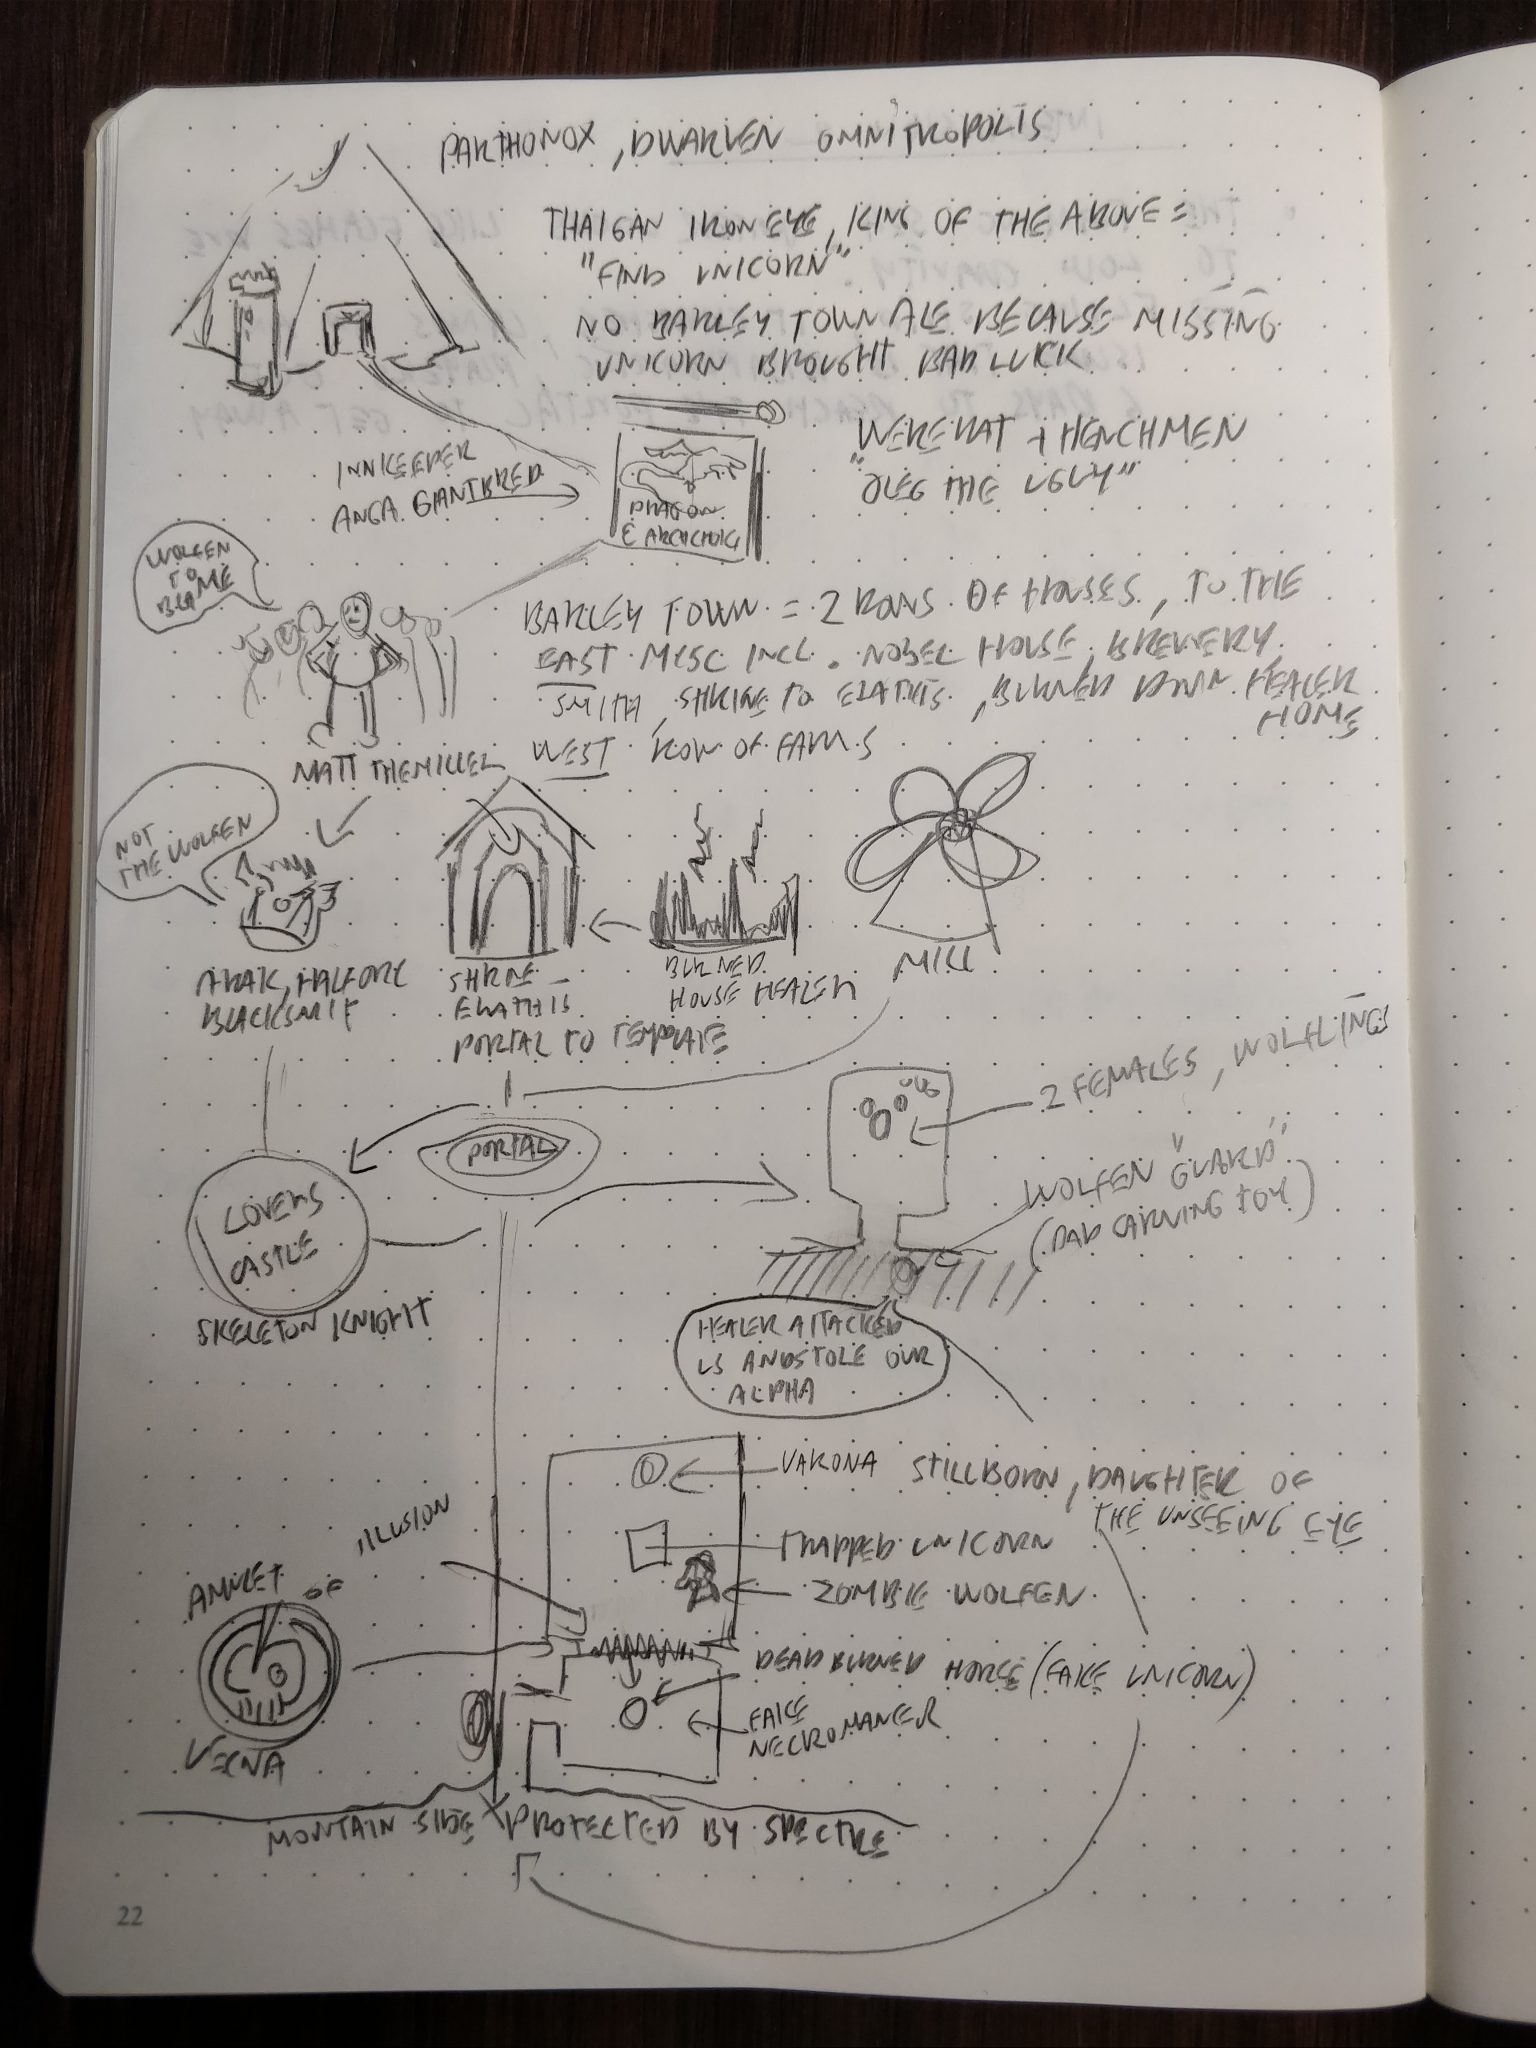 PARTHONOX, DWARVEN OMNITROPOLIS
THALGAN IRONEYE, KING OF THE ABOVE =
"FIND UNICORN"
NO BARLEY TOWN ALE BECAUSE MISSING
UNICORN BROUGHT BAD LUCK
INNKEEPER
ANGA GIANTBRED
DRAGON
&
WERERAT + HENCHMEN
"OLEG THE UGLY"
WOLFEN
TO
BLAME
BARLEY TOWN = 2 ROWS OF HOUSES, TO THE
EAST MISC INCL. NOBEL HOUSE, BREWERY,
SMITH, SHRINE TO ELATHIS, BURNED DOWN HEALER
HOME
WEST ROW OF FARMS
MATT THE MILLER
NOT
THE WOLFEN
ARAK, HALFORC
BLACKSMIT
SHRNE
ELATHIS
PORTAL TO TEMPLATE
BURNED
HOUSE HEALER
MILL
PORTAL
2 FEMALES, WOLFLINGS
WOLFEN "GUARD"
(DAD CARVING TOY)
LOVERS
CASTLE
SKELETON KNIGHT
HEALER ATTACKED
US AND STOLE OUR
ALPHA
VARONA STILLBORN, DAUGHTER OF
THE UNSEEING EYE
ILLUSION
TRAPPED UNICORN
ZOMBIE WOLFEN
AMULET
OF
VECNA
DEAD BURNED HORSE (FAKE UNICORN)
FAKE
NECROMANCER
MONTAIN SIDE PROTECTED BY SPECTRE
22